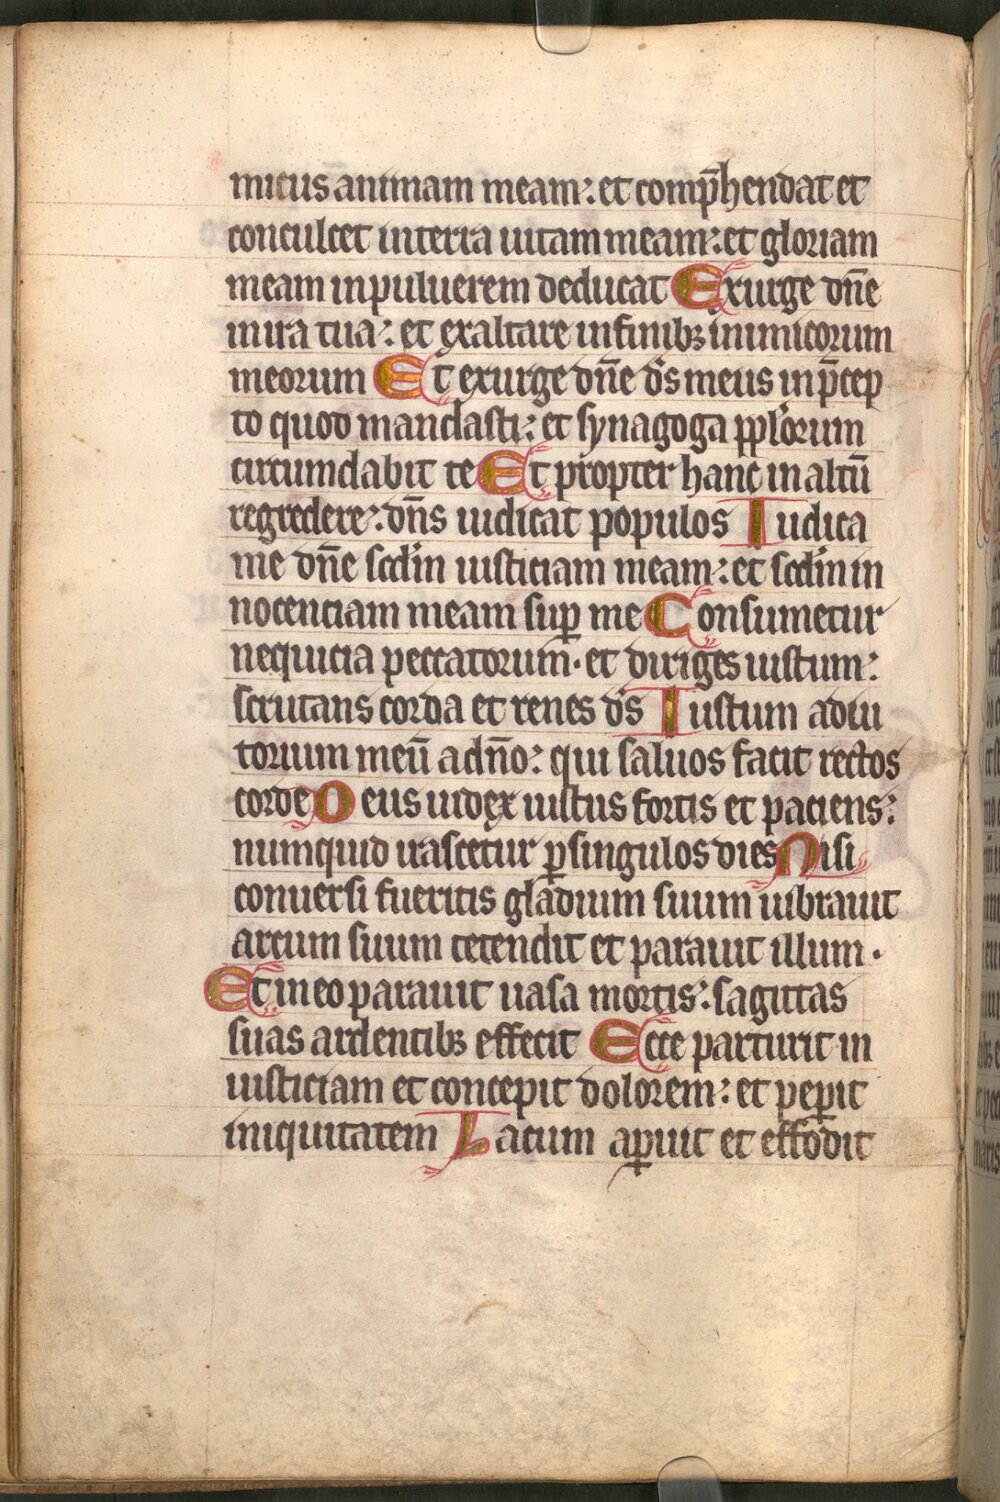 micus animam meam: et comp̄hendat et
conculcet in terra uitam meam: et gloriam
meam in puluerem deducat Exurge dn̄e
in ira tua: et exaltare in finibꝫ inimicorum
meorum Et exurge dn̄e d̄s meus in p̄cep
to quod mandasti: et synagoga ppl̓orum
circumdabit te Et propter hanc in altū
regredere: dn̄s iudicat populos Iudica
me dn̄e scd̓m iusticiam meam: et scd̓m in
nocenciam meam suꝑ me Consumetur
nequicia peccatorum· et diriges iustum:
scrutans corda et renes d̄s Iustum adiu
torium meū a dn̄o: qui saluos facit rectos
corde Deus iudex iustus fortis et paciens:
numquid irascetur ꝑ singulos dies Nisi
conuersi fueritis gladium suum uibrauit
arcum suum tetendit et parauit illum·
Et in eo parauit uasa mortis: sagittas
suas ardentibꝫ effecit Ecce parturit in
iusticiam et concepit dolorem: et peꝑit
iniquitatem Lacum aꝑuit et effodit